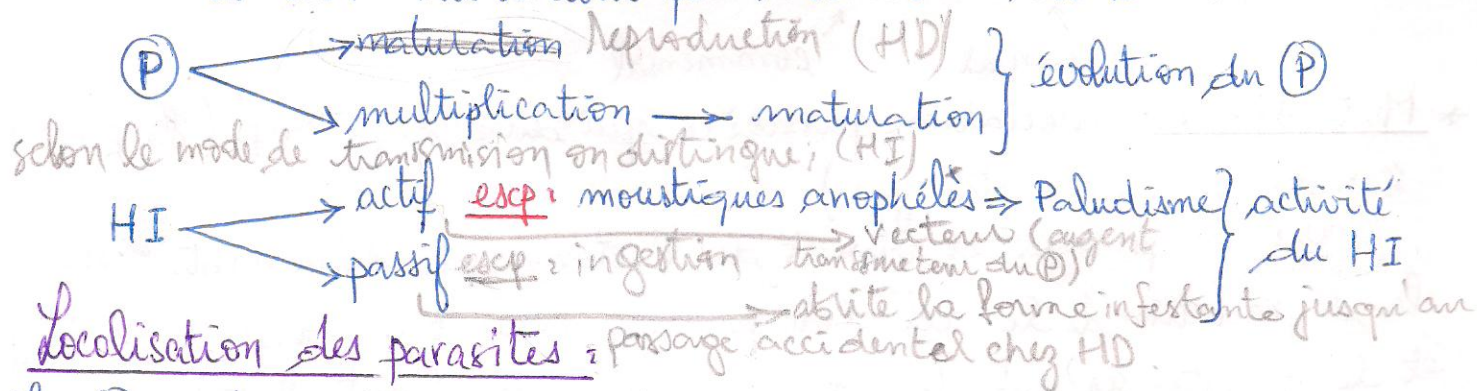 maturation Reproduction (HD)
P évolution du P
multiplication → maturation
selon le mode de transmision on distingue, (HI)
actif exp: moustiques anophélès ⇒ Paludisme activité
HI → vecteur (agent transmeteur du P) du HI
passif exp: ingestion
→ abrite la forme infestante jusqu'au
Localisation des parasites : passage accidentel chez HD